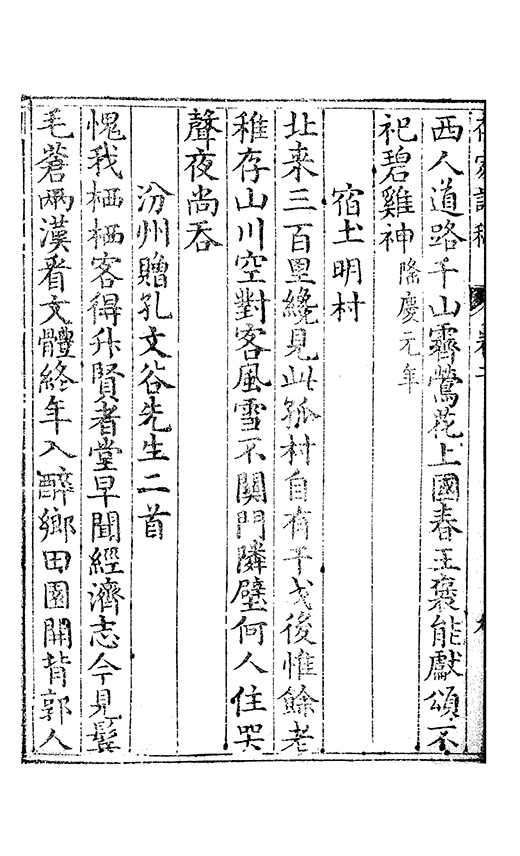 西人道路千山霽鶯花上國春王褒能獻頌不
祀碧雞神隆慶元年
宿土明村
北来三百里纔見此孤村自有干戈後惟餘老
稚存山川空對客風雪不關門隣壁何人住哭
聲夜尚吞
汾州贈孔文谷先生二首
愧我栖栖客得升賢者堂早聞經濟志今見鬂
毛蒼兩漢看文體終年入醉鄉田園開背郭人